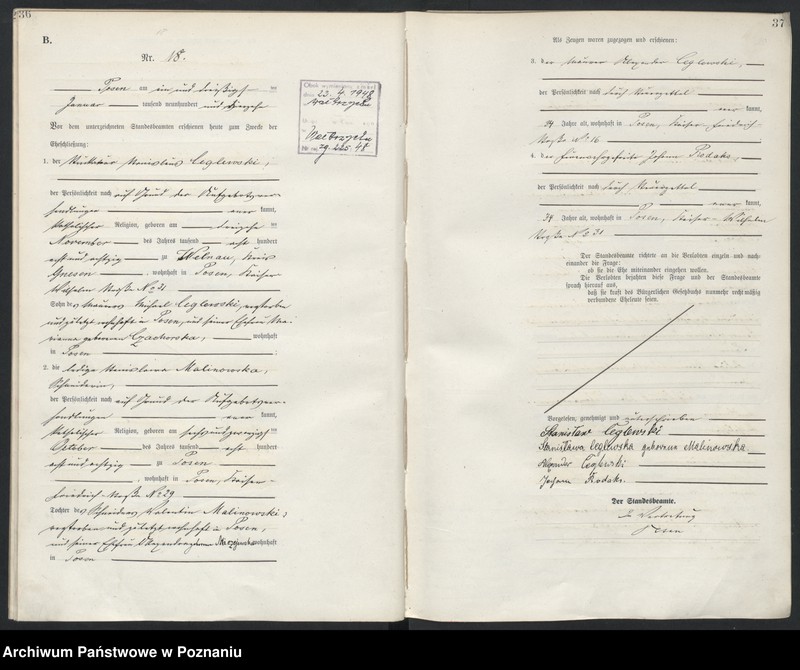 36
B.
Nr. 18.
Posen am ein und dreißigsten
Januar tausend neunhundert und
Vor dem unterzeichneten Standesbeamten erschienen heute zum Zwecke der
Eheschließung:
1. der Stanislaus Ceglewski,
der Persönlichkeit nach auf Grund der Aufgebotsver-
handlungen kannt,
katholischer Religion, geboren am
November des Jahres tausend acht hundert
acht und achtzig zu Welnau, Kreis
Gnesen, wohnhaft in Posen, Kaiser
Wilhelm Straße No 31
Sohn des Ceglewski, verstorben
und zuletzt wohnhaft in Posen, und seiner Ehefrau Ma-
rianna geborenen wohnhaft
in Posen
2. die ledige Stanislawa Malinowska,
Schneiderin,
der Persönlichkeit nach auf Grund der Aufgebotsver-
handlungen kannt,
katholischer Religion, geboren am sechsundzwanzigsten
October des Jahres tausend acht hundert
acht und achtzig zu Posen
, wohnhaft in Posen, Kaiser-
Friedrich-Straße No 29
Tochter des Schneiders Valentin Malinowski,
verstorben und zuletzt wohnhaft in Posen,
und seiner Ehefrau wohnhaft
in Posen
23. 4. 1948
37
Als Zeugen waren zugezogen und erschienen:
3. der Alexander Ceglewski,
der Persönlichkeit nach durch
kannt,
Jahre alt, wohnhaft in Posen, Kaiser-Friedrich-
Straße No 16
4. der Johann Rodaks,
der Persönlichkeit nach durch
kannt,
34 Jahre alt, wohnhaft in Posen, Kaiser-Wilhelm
Straße No 31
Der Standesbeamte richtete an die Verlobten einzeln und nach-
einander die Frage:
ob sie die Ehe miteinander eingehen wollen.
Die Verlobten bejahten diese Frage und der Standesbeamte
sprach hierauf aus,
daß sie kraft des Bürgerlichen Gesetzbuchs nunmehr rechtmäßig
verbundene Eheleute seien.
Vorgelesen, genehmigt und unterschrieben
Stanisław Ceglewski
Stanisława Ceglewska geborene Malinowska
Alexander Ceglewski
Johann Rodaks.
Der Standesbeamte.
In Vertretung
Archiwum Państwowe w Poznaniu